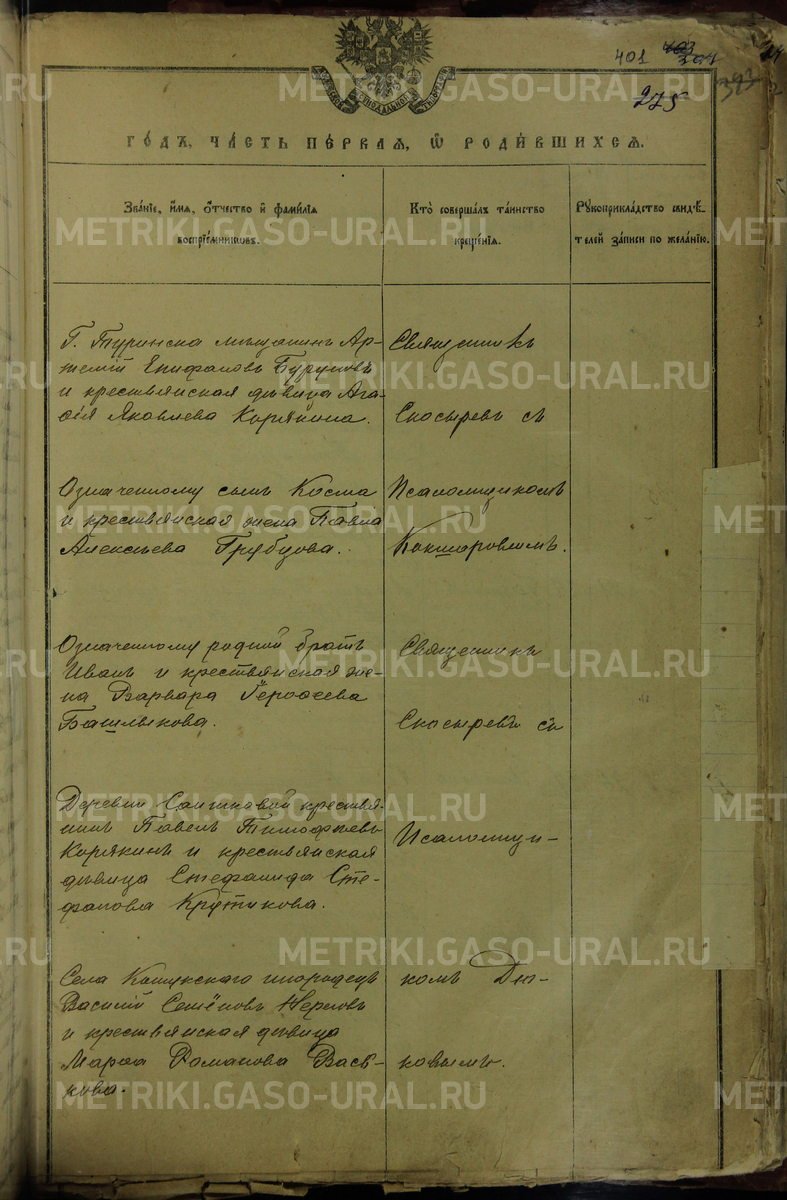 401 403
304
275
393
ГОДЪ, ЧАСТЬ ПЕРВАЯ, Ѡ РОДИВШИХСЯ.
Званіе, имя, отчество и фамилія
воспріемниковъ.
Кто совершалъ таинство
крещенія.
Рукоприкладство свидѣ-
телей записи по желанію.
Г. Туринска мѣщанинъ Ар-
темій Епифановъ Бурундъ
и крестьянская дѣвица Ага-
ѳія Яковлева Корякина.
Священникъ
Скосыревъ съ
Означенному сынъ Косма
и крестьянская жена Павла
Алексѣева Грубцова.
Псаломщикомъ
Кокшаровымъ.
Означенному родной братъ
Иванъ и крестьянская же-
на Варвара
Башлыкова.
Священникъ
Скосыревъ съ
Деревни крестья-
нинъ Павелъ Тимофѣевъ
Корякинъ и крестьянская
дѣвица Стефанида Сте-
фанова Крутикова.
Псаломщи-
Села Кошукскаго инородецъ
Василій Семёновъ
и крестьянская дѣвица
Марѳа Романова Вась-
кова.
комъ Дю-
ковымъ.
METRIKI.GASO-URAL.RU